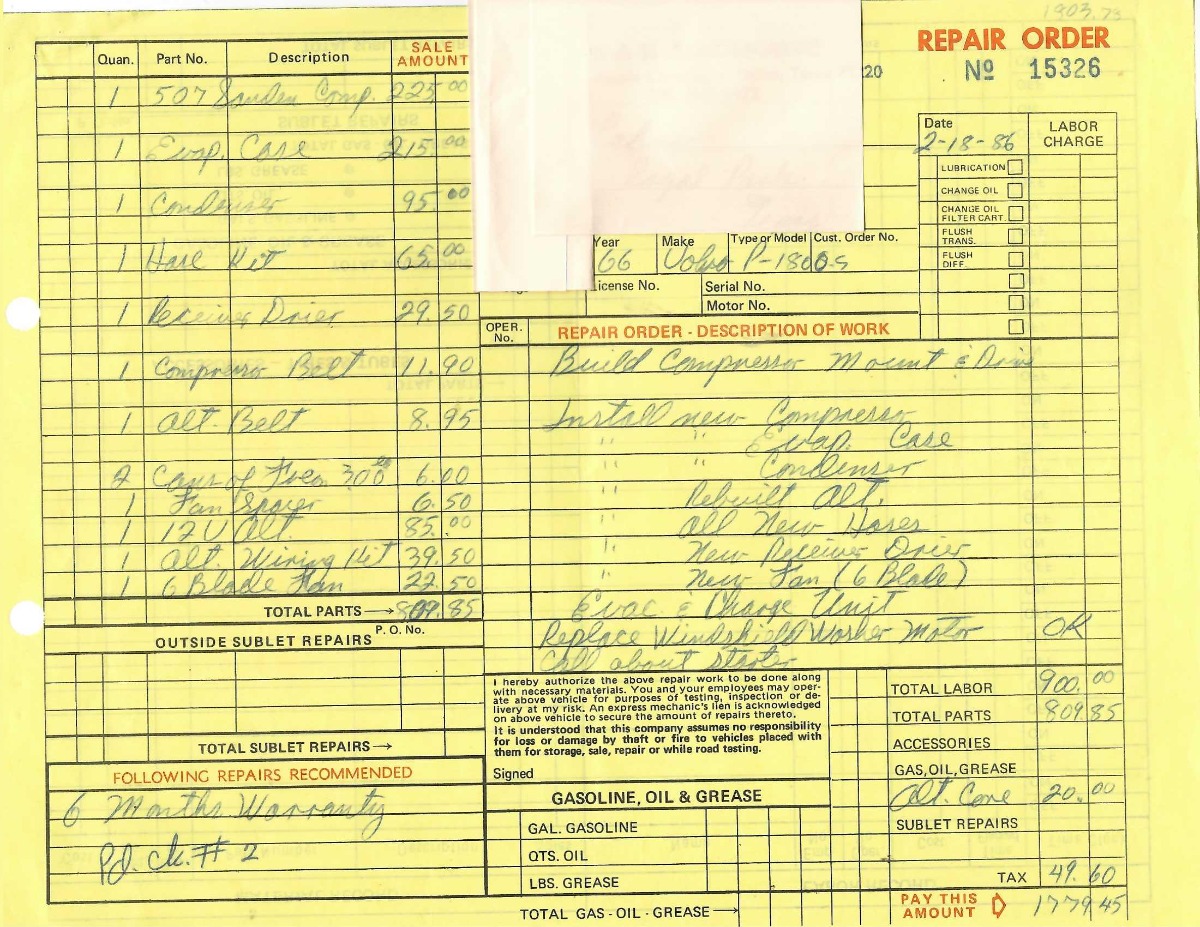 1903.73
REPAIR ORDER
20
Nº 15326
Quan. Part No. Description SALE AMOUNT
1 507 Sanden Comp. 225.00
1 Evap. Case 215.00
1 Condenser 95.00
1 Hose Kit 65.00
1 Receiver Drier 29.50
1 Compressor Belt 11.90
1 Alt. Belt 8.95
2 Cans of Freon 3.00 ea 6.00
1 Fan Spacer 6.50
1 12 V Alt. 85.00
1 Alt. Wiring Kit 39.50
1 6 Blade Fan 22.50
TOTAL PARTS → 809.85
OUTSIDE SUBLET REPAIRS P. O. No.
TOTAL SUBLET REPAIRS →
FOLLOWING REPAIRS RECOMMENDED
6 Months Warranty
Pd. ck. # 2
Date
2-18-86
LABOR CHARGE
LUBRICATION
CHANGE OIL
CHANGE OIL FILTER CART.
FLUSH TRANS.
FLUSH DIFF.
Year Make Type or Model Cust. Order No.
66 Volvo P-1800S
License No. Serial No.
Motor No.
OPER. No. REPAIR ORDER - DESCRIPTION OF WORK
Build Compressor Mount & Drive
Install new Compressor
" " Evap. Case
" " Condenser
" Rebuilt Alt.
" All New Hoses
" New Receiver Drier
" New Fan (6 Blade)
Evac & Charge Unit
Replace Windshield Washer Motor OK
Call about starter
I hereby authorize the above repair work to be done along
with necessary materials. You and your employees may oper-
ate above vehicle for purposes of testing, inspection or de-
livery at my risk. An express mechanic's lien is acknowledged
on above vehicle to secure the amount of repairs thereto.
It is understood that this company assumes no responsibility
for loss or damage by theft or fire to vehicles placed with
them for storage, sale, repair or while road testing.
Signed
GASOLINE, OIL & GREASE
GAL. GASOLINE
QTS. OIL
LBS. GREASE
TOTAL GAS - OIL - GREASE →
TOTAL LABOR 900.00
TOTAL PARTS 809.85
ACCESSORIES
GAS, OIL, GREASE
Alt. Core 20.00
SUBLET REPAIRS
TAX 49.60
PAY THIS AMOUNT 1779.45